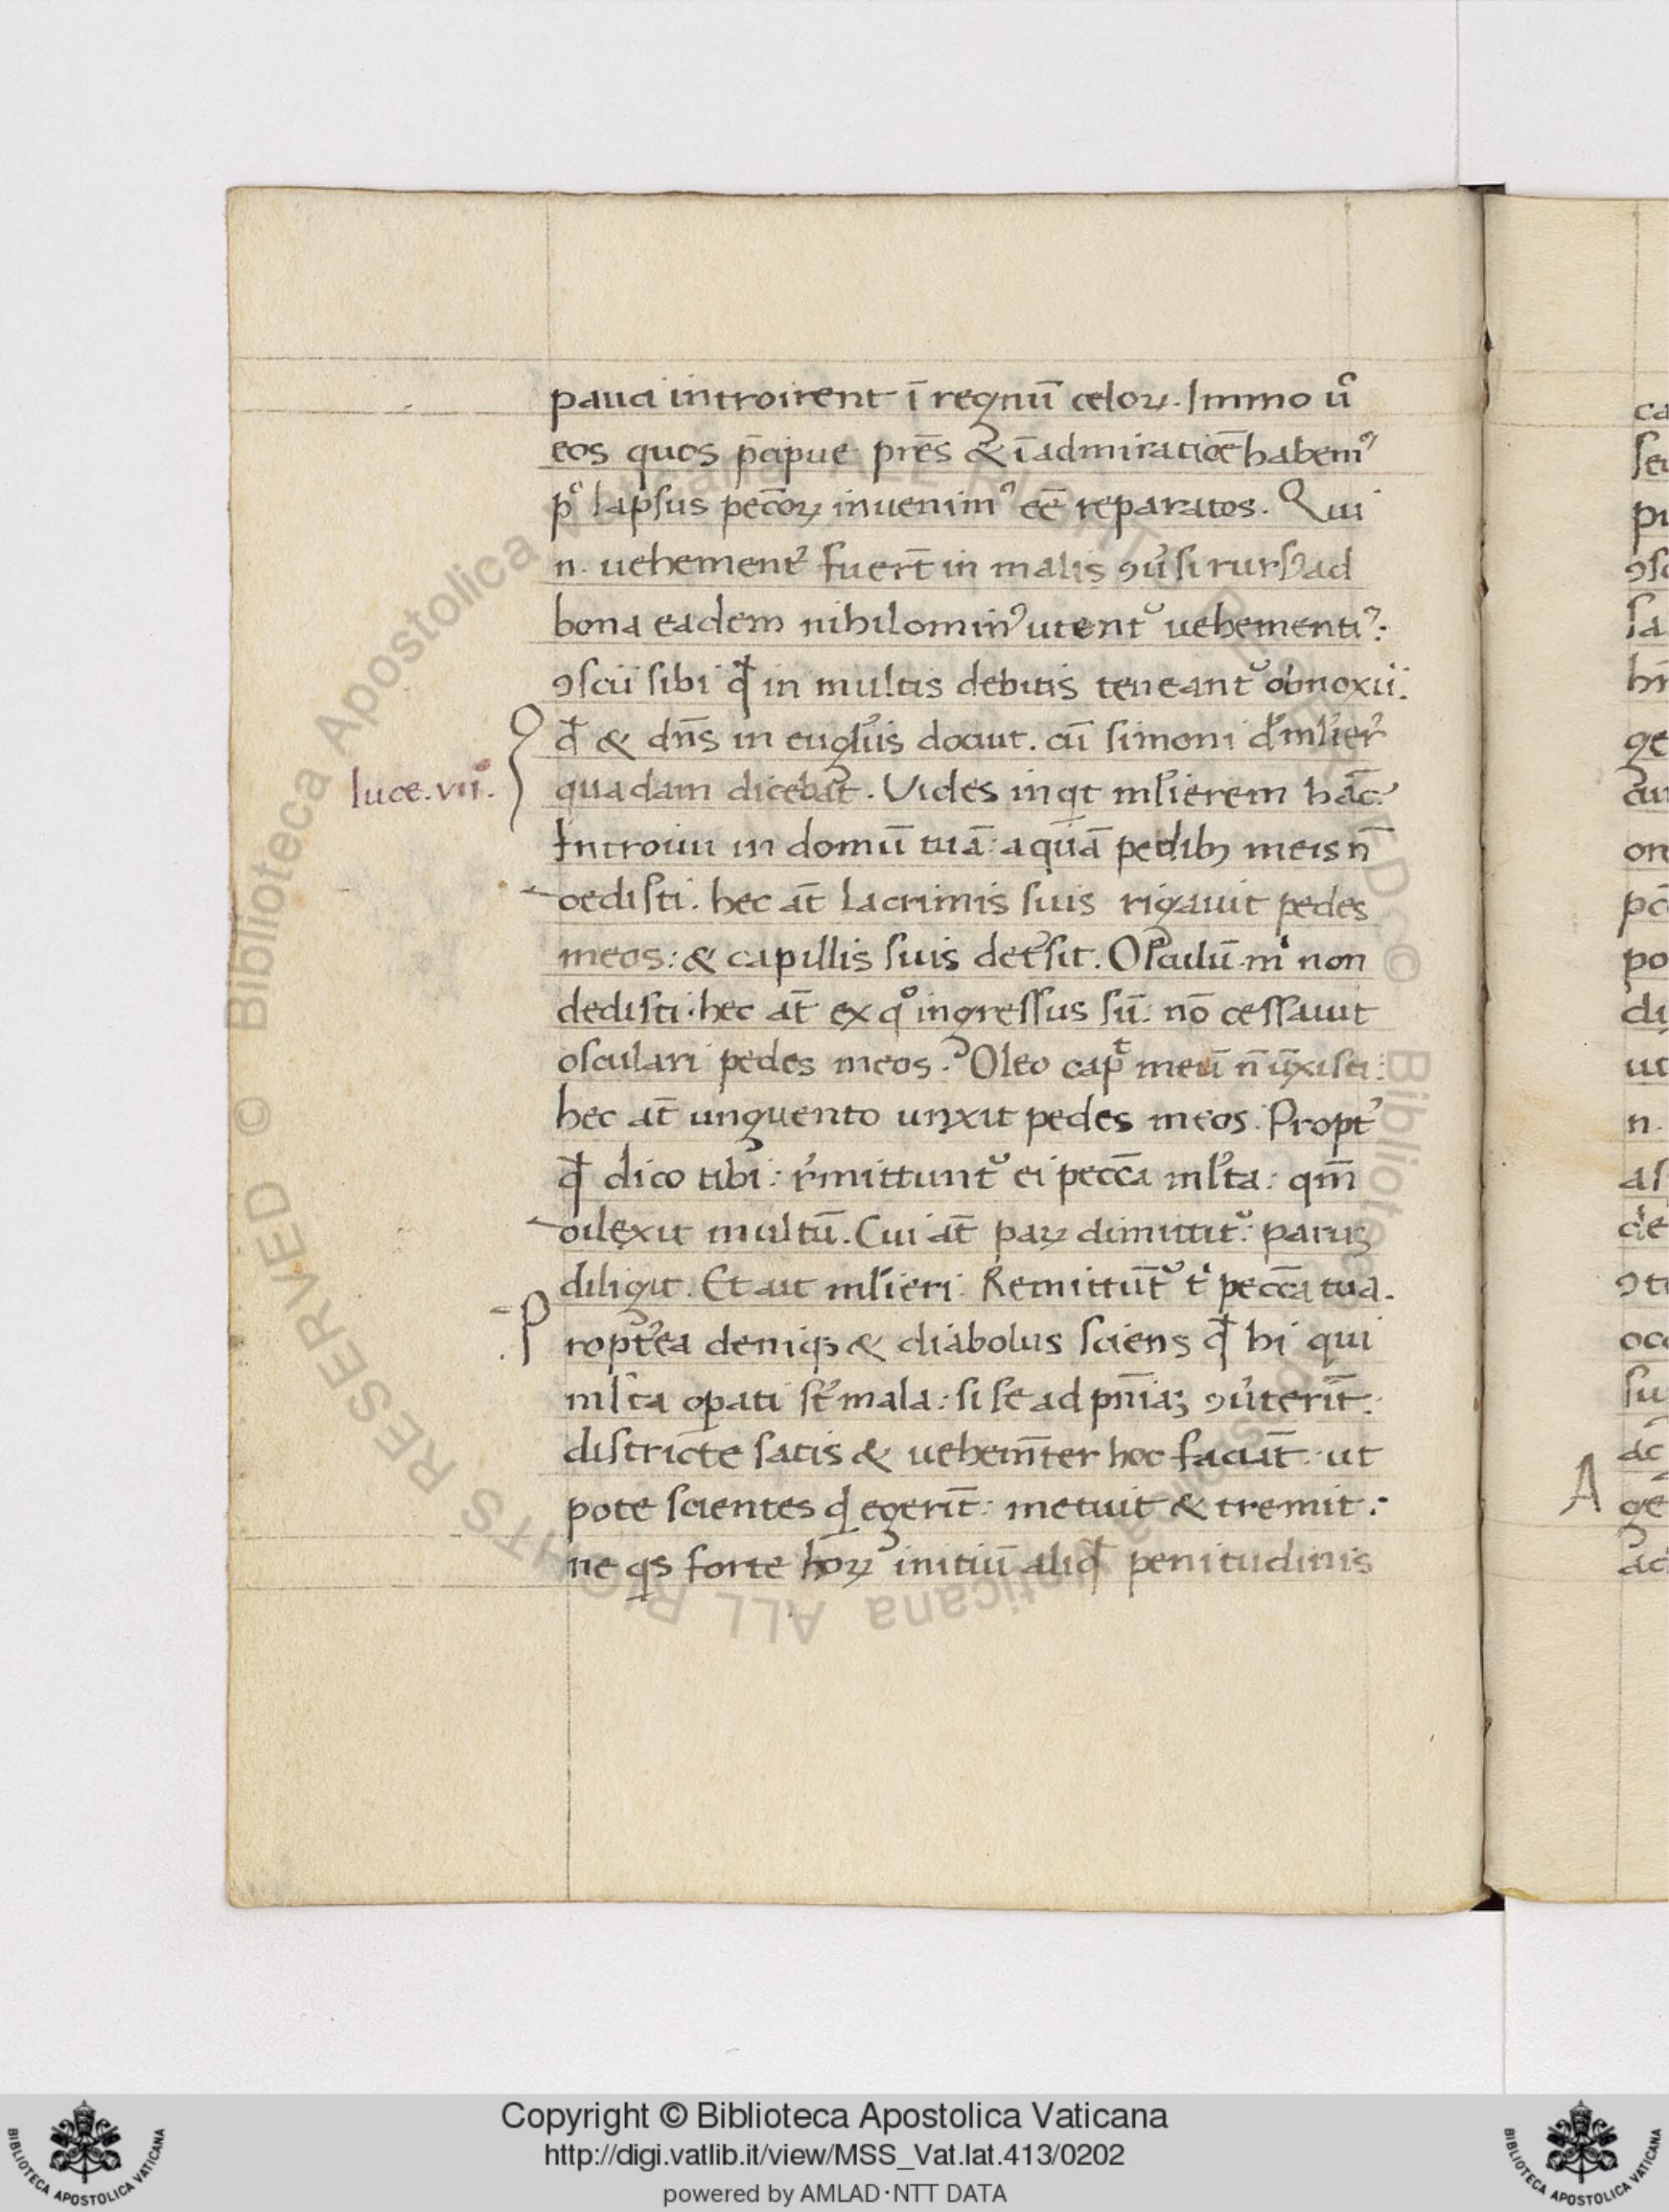 pauci introirent ī regnū celoꝝ. Immo ũ
eos quos p̄cipue pr̄es & ī admiratiōe habemꝰ
pꝰ lapsus peccōꝝ inuenimꝰ eē̄ reparatos. Qui
n. uehement᷑ fuer̄t in malis ꝯũsi rursꝰ ad
bona eadem nihilominꝰ utent᷑ uehementiꝰ:
ꝯscii sibi ꝙ in multis debitis teneant᷑ obnoxii.
ꝙ & dn̄s in euḡliis docuit. cū simoni d᷑ ml̓ier᷑
luce.vii°.
quadam dicebat. Uides inqͥt ml̓ierem hāc?
Introiui in domū tuā: aquā pedibꝫ meis n̄
dedisti. hec at̄ lacrimis suis rigauit pedes
meos: & capillis suis det᷑sit. Osculū mͥ non
dedisti. hec at̄ ex qͦ ingressus sū: nō cessauit
osculari pedes meos. Oleo capᵗ meū n̄ ūxisti:
hec at̄ unguento unxit pedes meos. Propt᷑
ꝙ dico tibi: r᷑mittunt᷑ ei pecc̄a ml̓ta: qm̄
dilexit multū. Cui at̄ paꝝ dimittit᷑: parꝝ
diligit. Et ait ml̓ieri. Remittūt᷑ tͥ pecc̄a tua.
Propt᷑ea deniqꝫ & diabolus sciens ꝙ hi qui
ml̓ta oꝑati st̄ mala: si se ad pn̄iaꝫ ꝯũterīt:
districte satis & uehemn̄ter hoc faciāt: ut
pote scientes qͥd egerīt: metuit & tremit:
ne qͥs forte hōꝝ initiū aliqd̄ penitudinis
A
Copyright © Biblioteca Apostolica Vaticana
http://digi.vatlib.it/view/MSS_Vat.lat.413/0202
powered by AMLAD·NTT DATA
© Biblioteca Apostolica Vaticana ALL RIGHTS RESERVED
BIBLIOTECA APOSTOLICA VATICANA
BIBLIOTECA APOSTOLICA VATICANA